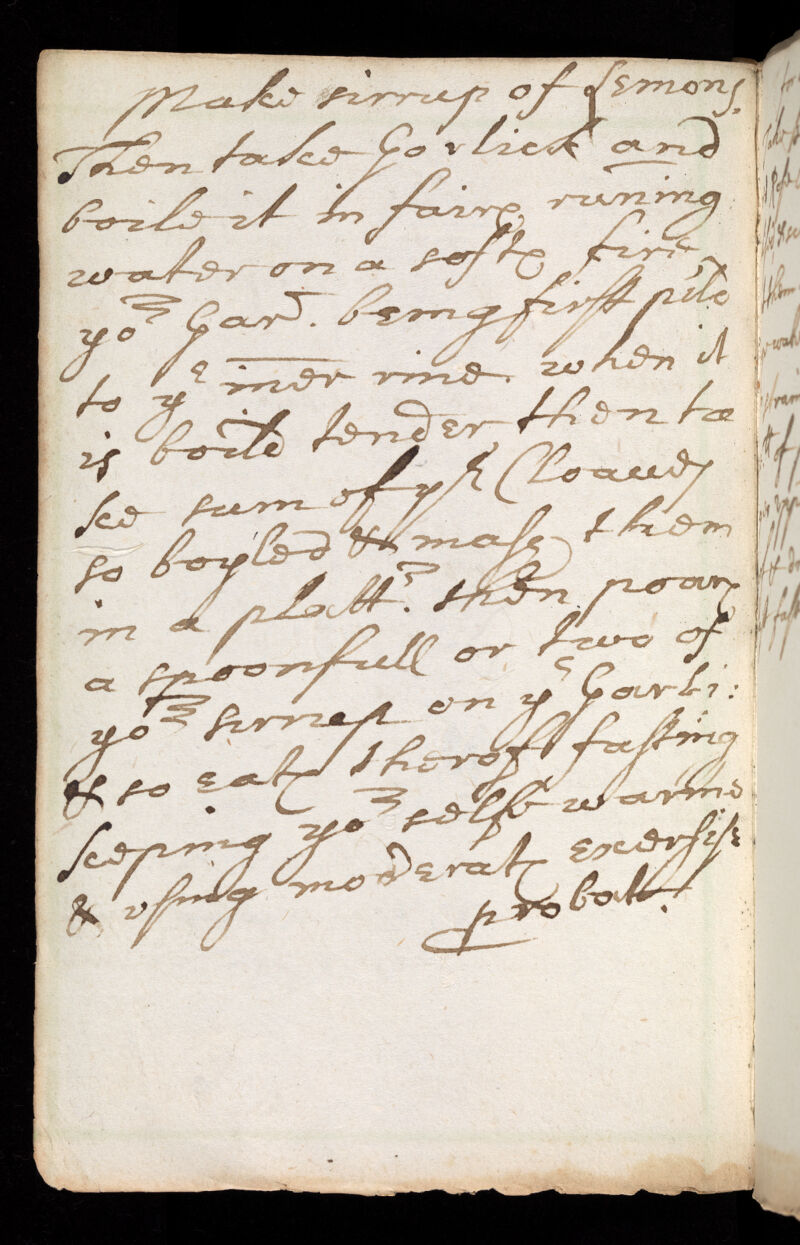 Make sirrup of Lemons,
Then take Gorlick and
boile it in faire runing
water on a softe fire
yor Gar: being first pild
to ye iner rine when it
is boild tender then ta
ke sum of ys Cloaues
so boyled & mash them
in a plattr. then poare
a spoonfull or two of
yor sirrup on ye Garli:
& so eate therof fasting
keeping yor selfe warme
& vsing moderate exersise
probat.